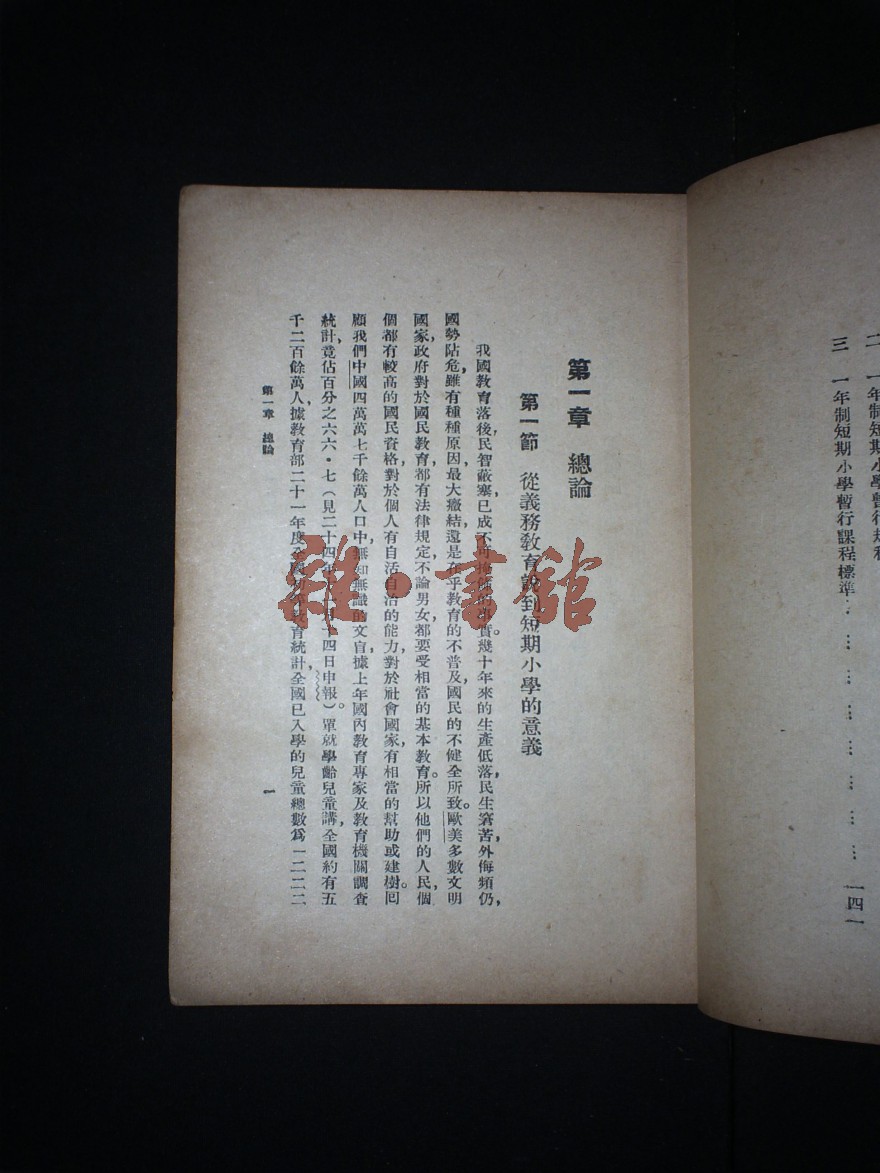 二 一年制短期小學暫行規程
三 一年制短期小學暫行課程標準……………………一四一
第一章 總論
第一節 從義務教育說到短期小學的意義
我國教育落後,民智蔽塞,已成不可掩飾的事實。幾十年來的生產低落,民生窘苦,外侮頻仍,
國勢阽危,雖有種種原因,最大癥結,還是在乎教育的不普及,國民的不健全所致。歐美多數文明
國家,政府對於國民教育,都有法律規定,不論男女,都要受相當的基本教育。所以他們的人民,個
個都有較高的國民資格,對於個人有自活自治的能力,對於社會國家,有相當的幫助或建樹。囘
顧我們中國四萬萬七千餘萬人口中,無知無識的文盲,據上年國內教育專家及教育機關調查
統計,竟佔百分之六六・七(見二十四年月十四日申報)。單就學齡兒童講,全國約有五
千二百餘萬人,據教育部二十一年度全國初等教育統計,全國已入學的兒童總數爲一二二二
第一章 總論
一
雜·書館